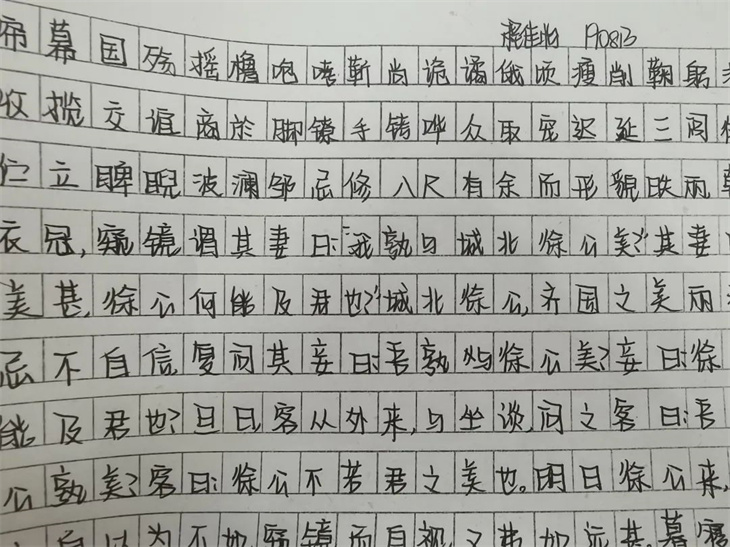 190813
帘幕国殇摇橹咆嘻靳尚诡谲俄顷瘦削鞠躬
收揽交谊商於脚镣手铐哗众取宠迟延三闾
伫立睥睨波澜邹忌修八尺有余而形貌昳丽朝
衣冠，窥镜谓其妻曰:“我孰与城北徐公美?”其妻曰
美甚，徐公何能及君也?”城北徐公，齐国之美丽
忌不自信复问其妾曰:吾孰与徐公美?妾曰:徐
能及君也?旦日，客从外来，与坐谈，问之客曰:吾
公孰美?客曰:徐公不若君之美也。明日徐公来，
自以为不如窥镜而自视，又弗如远甚。暮寝